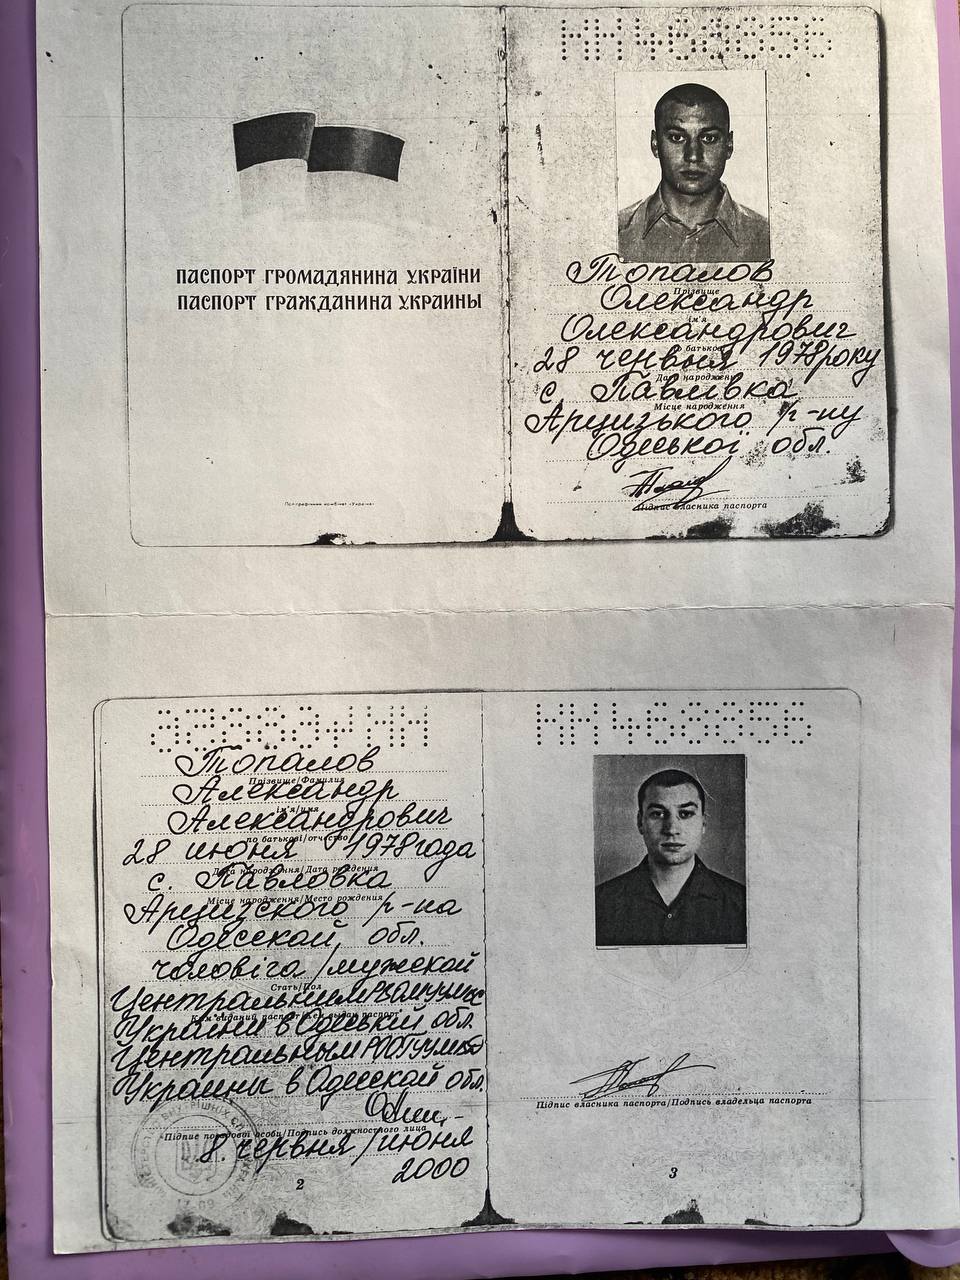 НН468856
ПАСПОРТ ГРОМАДЯНИНА УКРАЇНИ
ПАСПОРТ ГРАЖДАНИНА УКРАИНЫ
Поліграфічний комбінат «Україна»
Топалов
Прізвище
Олександр
ім'я
Олександрович
по батькові
28 червня 1978 року
Дата народження
с. Павлівка
Місце народження
Арцизького р-ну
Одеської обл.
Підпис власника паспорта
НН468856
Топалов
Прізвище/Фамилия
Александр
ім'я/имя
Александрович
по батькові/отчество
28 июня 1978 года
Дата народження/Дата рождения
с. Павловка
Місце народження/Место рождения
Арцизского р-на
Одесской обл.
чоловіча/мужской
Стать/Пол
Центральним
Ким виданий паспорт/Кем выдан паспорт
України в Одеській обл.
Центральным
Украины в Одесской обл.
Підпис посадової особи/Подпись должностного лица
8 червня/июня
2000
2
НН468856
Підпис власника паспорта/Подпись владельца паспорта
3